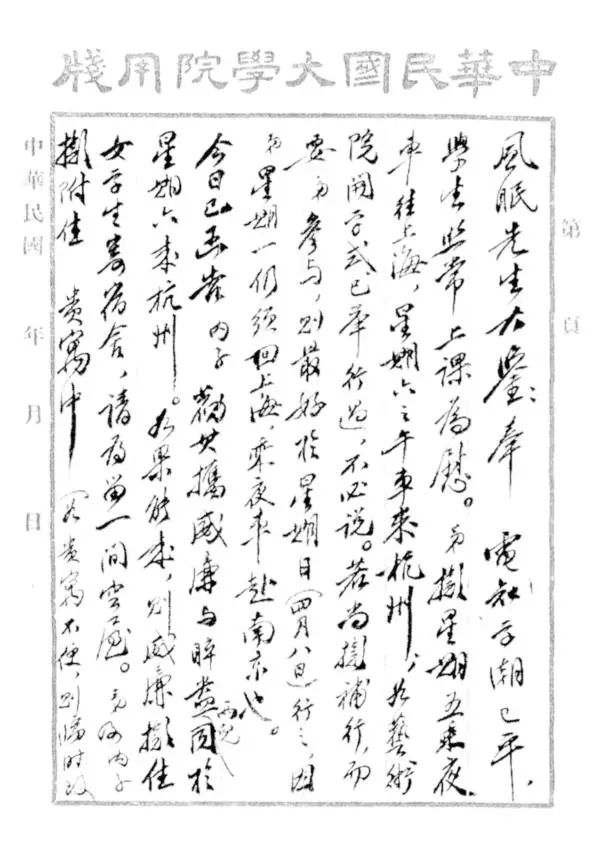 中華民國大學院用牋
第 頁
風眠先生大鑒：奉 電知学潮已平，
學生照常上課為慰。弟擬星期五乘夜
車往上海，星期六之午車来杭州；如藝術
院開学式已举行過，不必说。若尚擬補行，而
要弟參与，则最好於星期日（四月八日）行之，因
弟星期一仍须回上海，乘夜車赴南京也。
今日已函告 内子 勸其攜威廉与睟盎两兒同於
星期六来杭州。如果能来，则威廉擬住
女学生寄宿舍，请为留一間空屋。弟與内子
擬附住 貴寓中（若貴寓不便，则臨时改
中華民國 年 月 日